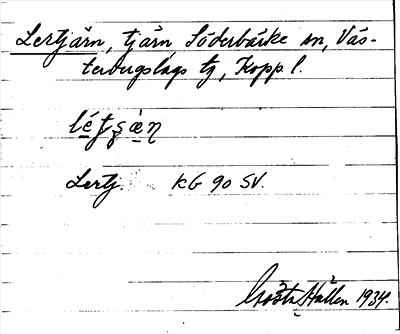 Lertjärn, tjärn, Söderbärke sn, Väs-
terbergslags tg, Kopp l.
Lertj. KG 90 SV.
Gösta Hallen 1934.